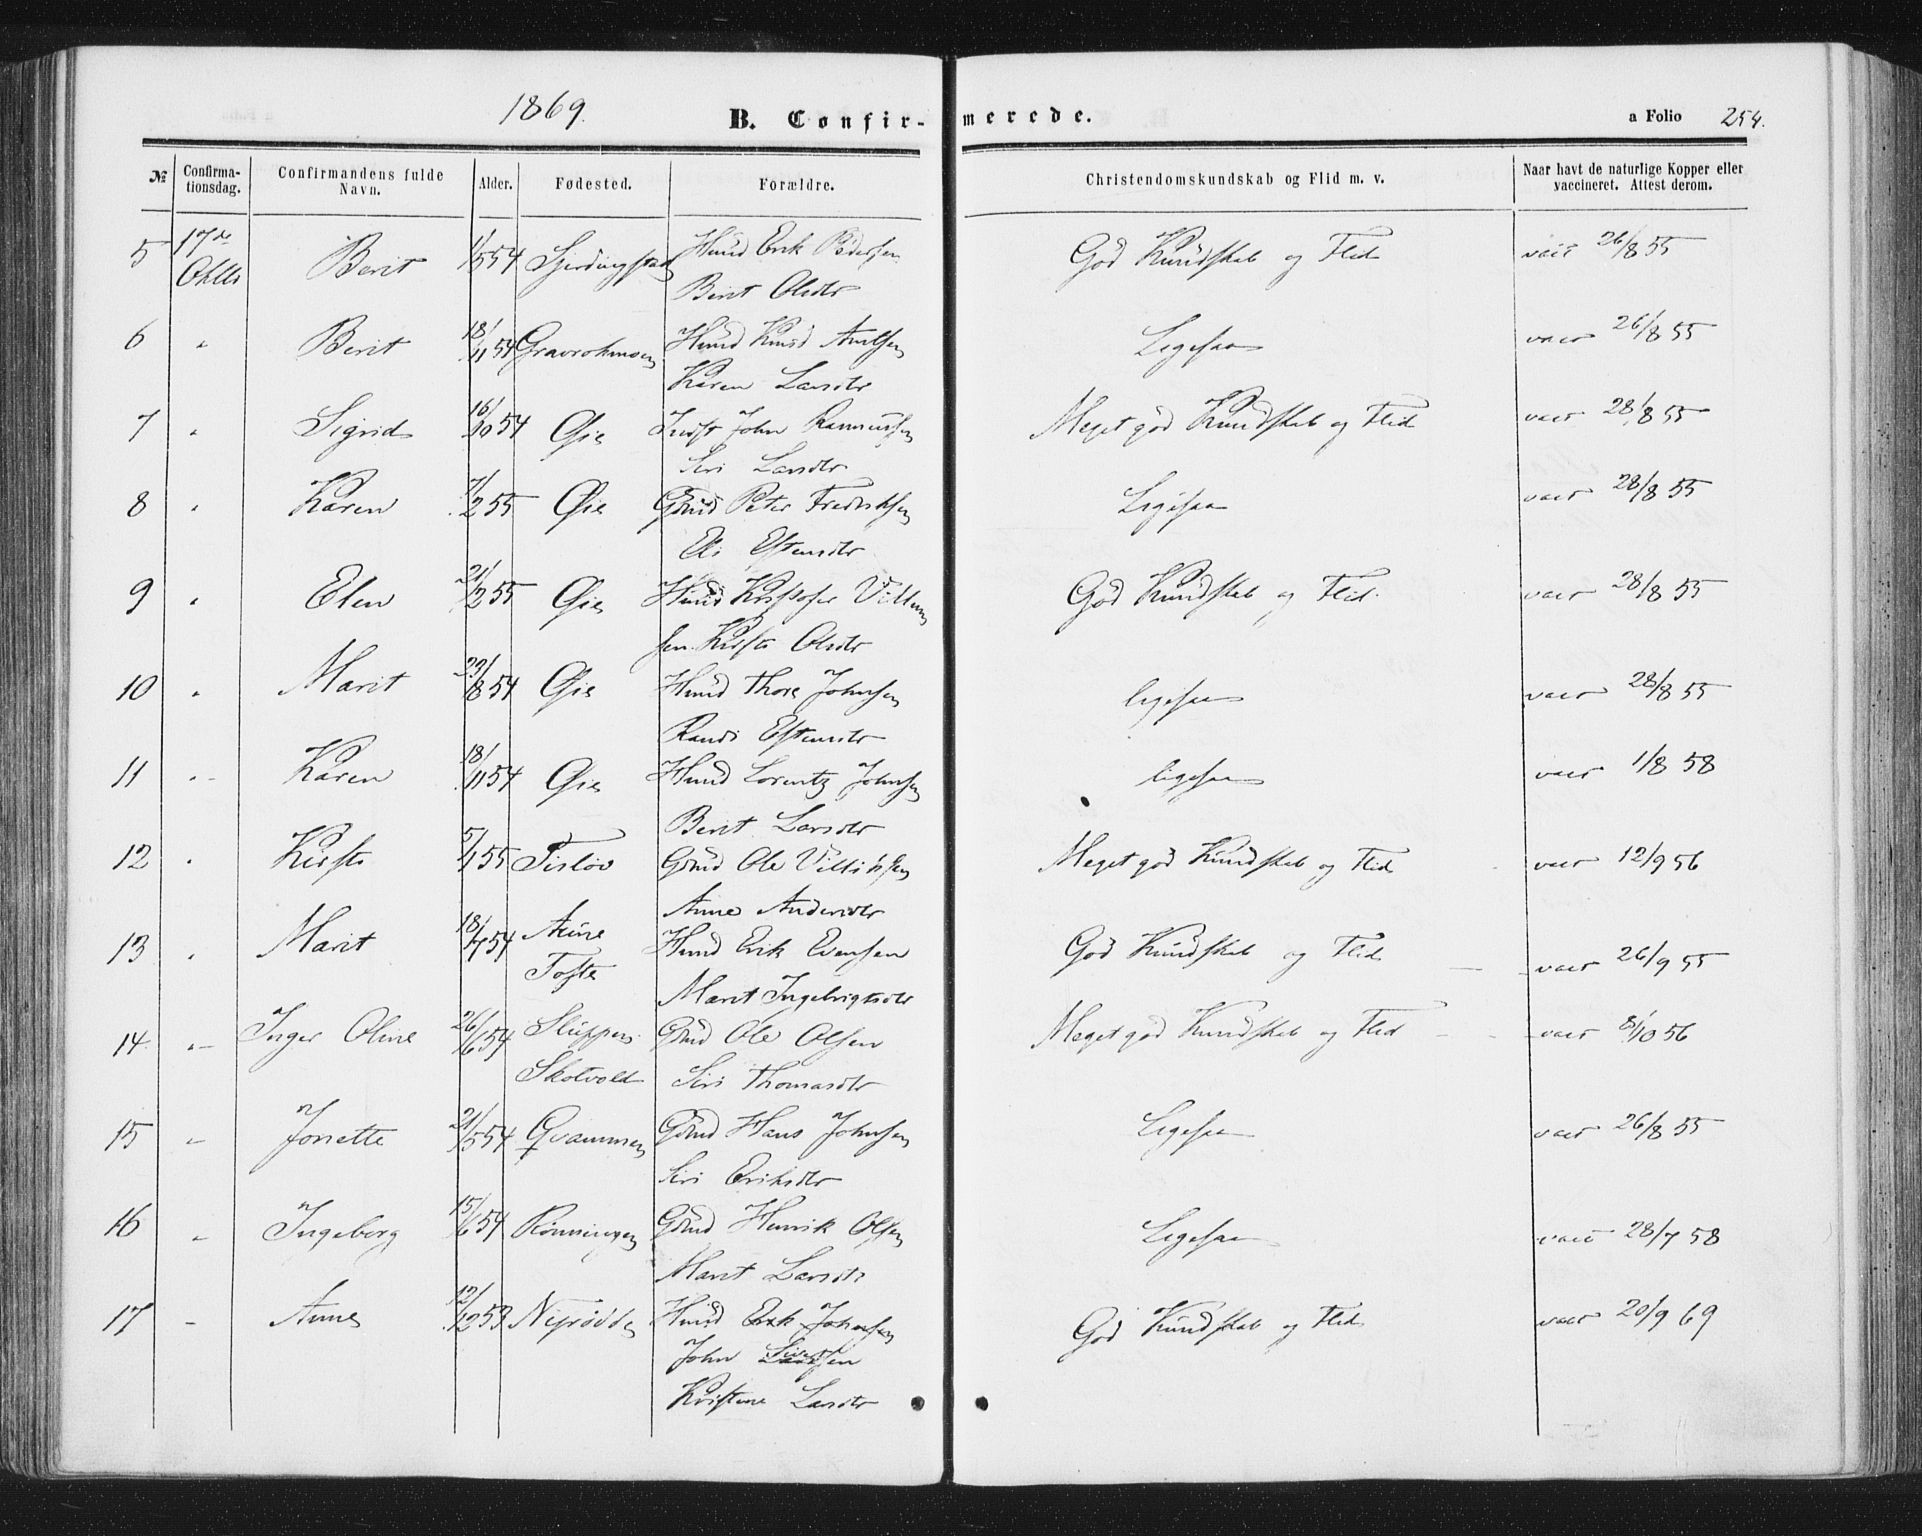 1869.
B. Confir-merede.
a Folio 254.
№ Confirma-tionsdag. Confirmandens fulde Navn. Alder. Fødested. Forældre. Christendomskundskab og Flid m. v. Naar havt de naturlige Kopper eller vaccineret. Attest derom.
5 17de Octbr Berit 1/5 54 Gjerdingstad Huusd Erik Pedersen God Kundskab og Flid vacc 26/8 55
Berit Olsdtr
6 " Berit 18/11 54 Gravrokmoen Huusd Knud Arntsen Ligesaa vacc 26/8 55
Karen Larsdtr
7 " Sigrid 16/10 54 Øie Indst John Rasmussen Meget god Kundskab og Flid vacc 28/8 55
Siri Larsdtr
8 " Karen 7/2 55 Øie Gbrud Peter Fredriksen Ligesaa vacc 28/8 55
Eli Estensdtr
9 " Elen 21/2 55 Øie Huusd Kristofer Villum God Kundskab og Flid. vacc 28/8 55
sen. Kirsti Olsdtr
10 " Marit 23/8 54 Øie Huusd Thore Johnsen ligesaa vacc 28/8 55
Randi Estensdtr
11 " Karen 18/11 54 Øie Huusd Lorentz Johnsen ligesaa vacc 1/8 58
Berit Larsdtr
12 " Kirsti 5/1 55 Tisløv Gbrud Ole Meget god Kundskab og Flid vacc 12/9 56
Anne Andersdtr
13 " Marit 18/7 54 Aune Huusd Erik Evensen God Kundskab og Flid vacc 26/9 55
Tofte Marit Ingebrigtsdtr
14 " Inger Oline 26/6 54 Gbrud Ole Olsen Meget god Kundskab og Flid vacc 8/10 56
Skotvold Siri Thomasdtr
15 " Jonette 21/5 54 Qvammen Gbrud Hans Johnsen Ligesaa vacc 26/8 55
Siri Eriksdtr
16 " Ingeborg 15/6 54 Rønningen Gbrud Henrik Olsen Ligesaa vacc 28/7 58
Marit Larsdtr
17 " Anne 12/12 53 Huusd Erik Johnsen God Kundskab og Flid vacc 20/9 69
John
Kristine Larsdtr